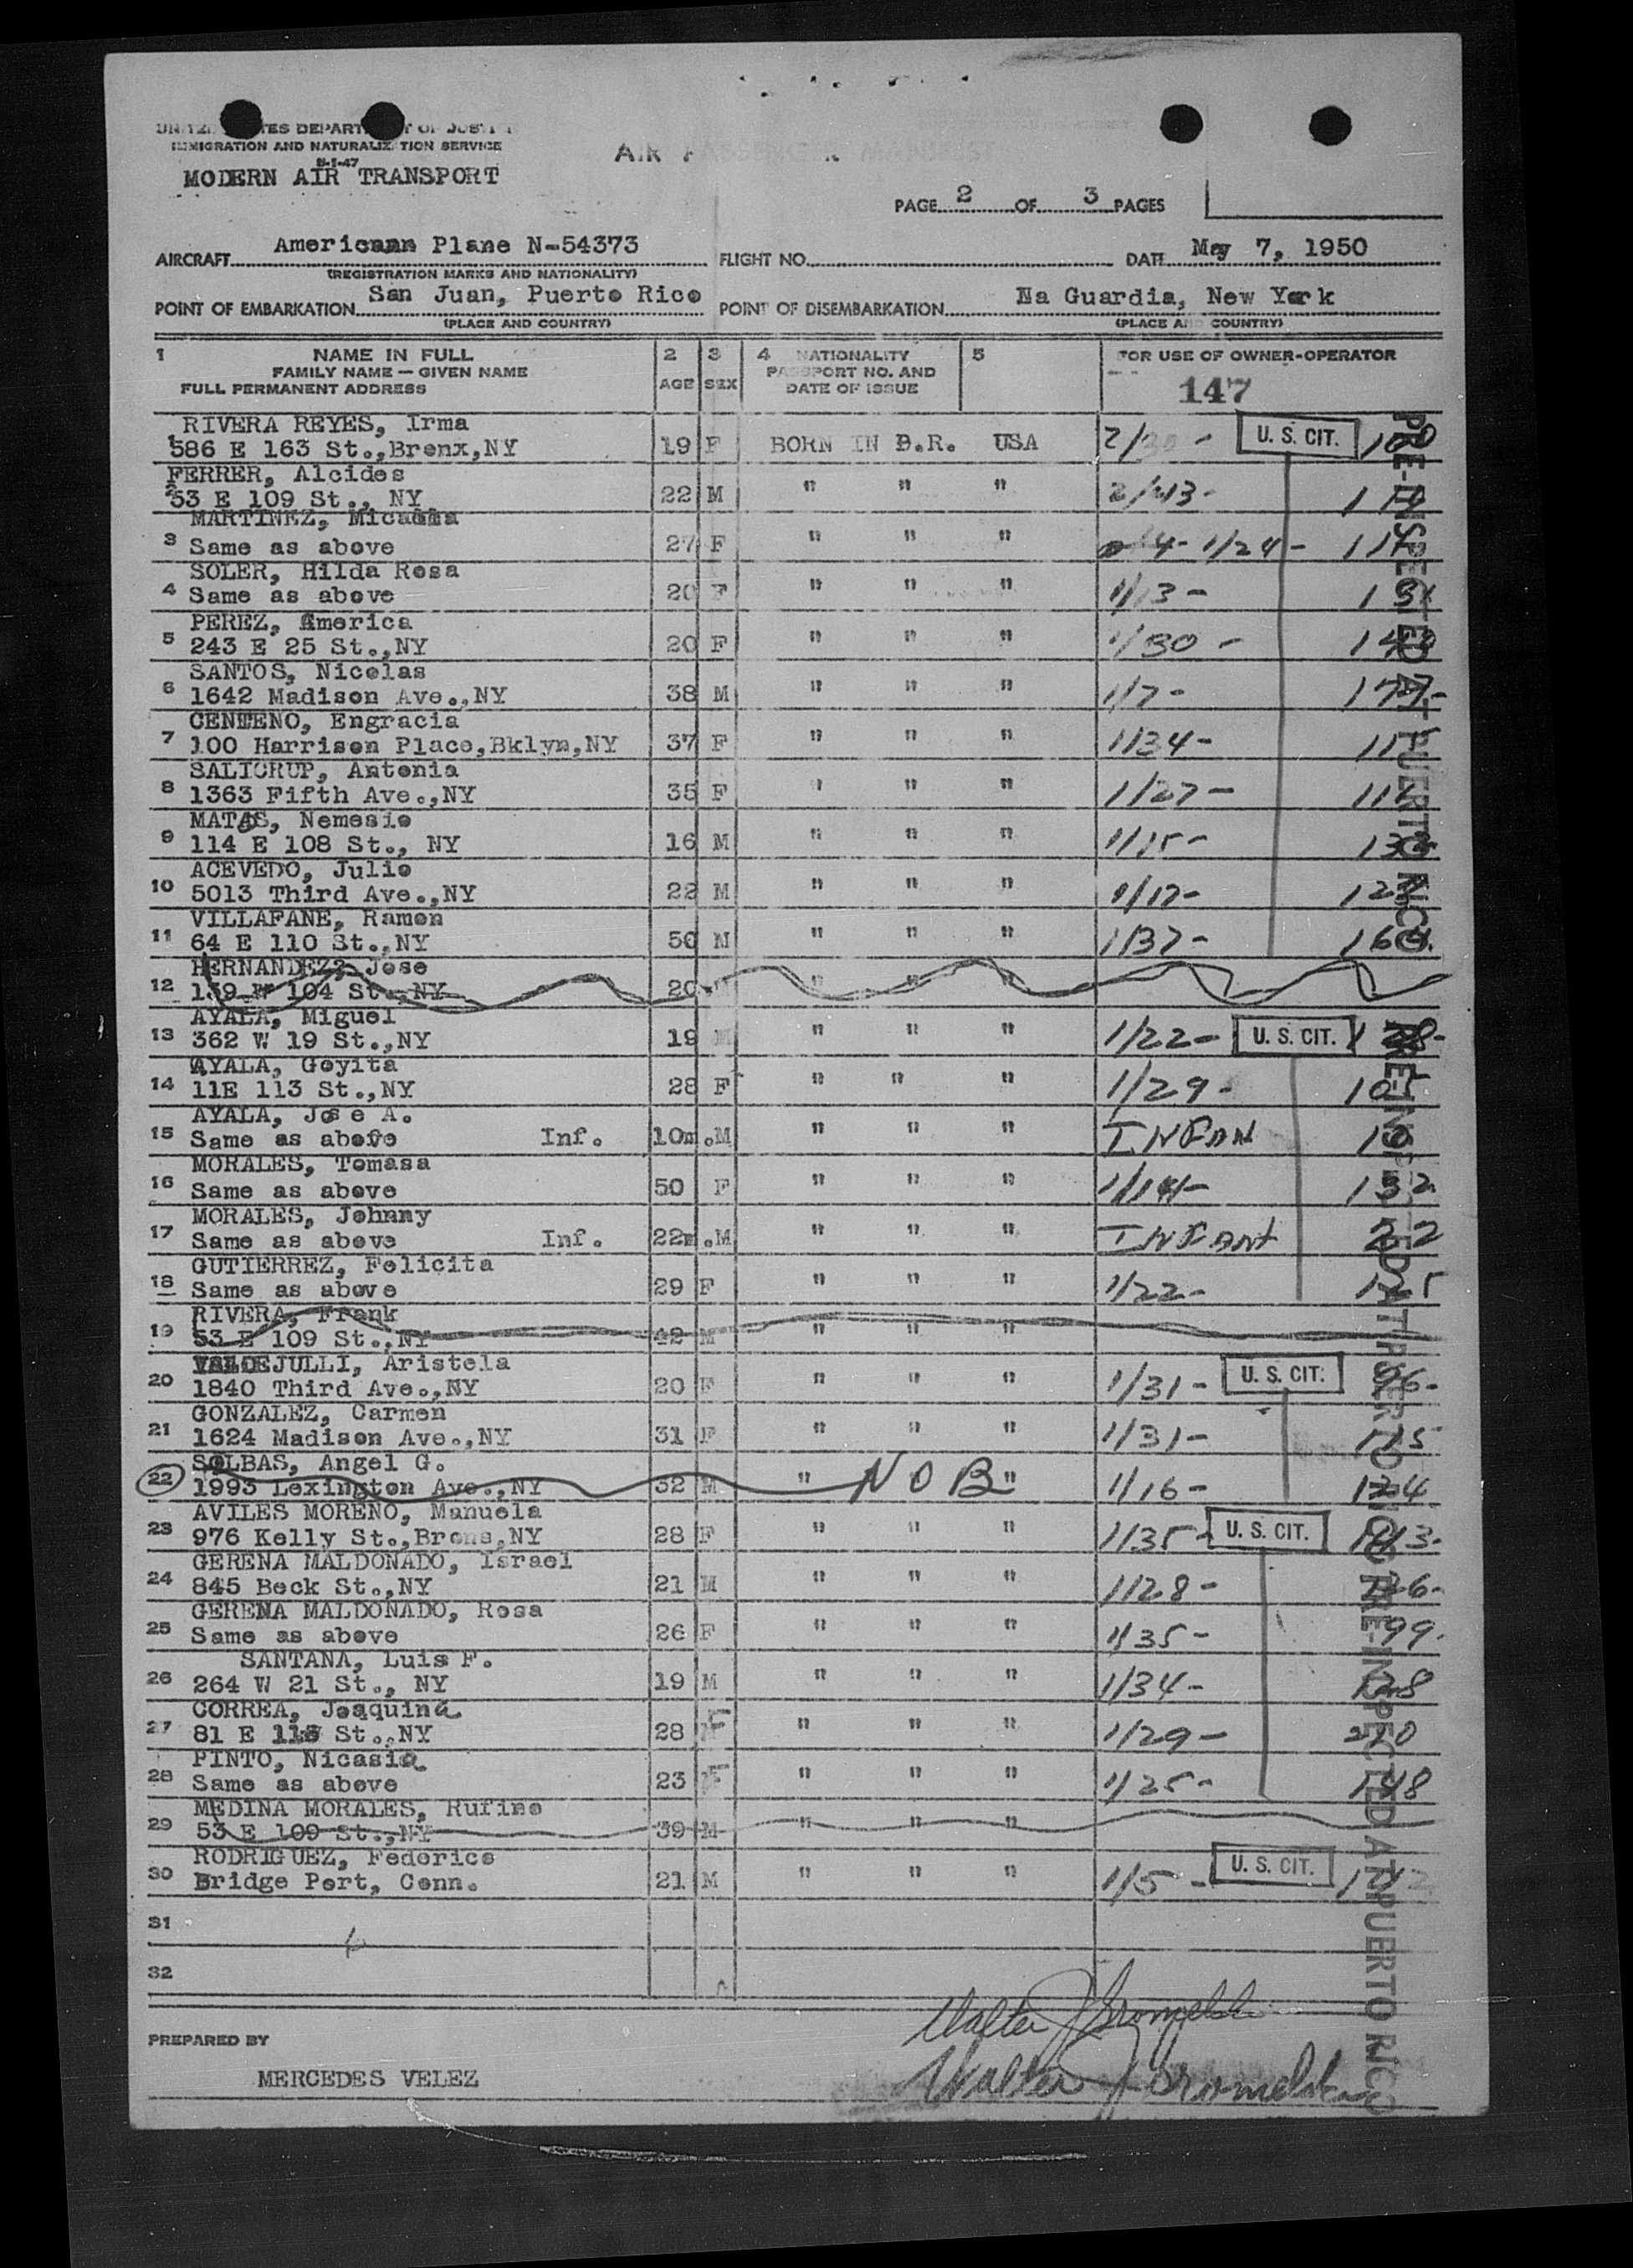 UNITED STATES DEPARTMENT OF JUSTICE
IMMIGRATION AND NATURALIZATION SERVICE
MODERN AIR TRANSPORT
AIR PASSENGER MANIFEST
PAGE 2 OF 3 PAGES
AIRCRAFT American Plane N-54373 FLIGHT NO. DATE May 7, 1950
(REGISTRATION MARKS AND NATIONALITY)
POINT OF EMBARKATION San Juan, Puerto Rico POINT OF DISEMBARKATION La Guardia, New York
(PLACE AND COUNTRY) (PLACE AND COUNTRY)
1 NAME IN FULL 2 3 4 NATIONALITY 5 FOR USE OF OWNER-OPERATOR
FAMILY NAME — GIVEN NAME AGE SEX PASSPORT NO. AND
FULL PERMANENT ADDRESS DATE OF ISSUE 147
RIVERA REYES, Irma
586 E 163 St.,Bronx,NY 19 F BORN IN P.R. USA U. S. CIT.
FERRER, Alcides
53 E 109 St., NY 22 M " " " 2/43-
MARTINEZ,
3 Same as above 27 F " " " 1/24- 114
SOLER, Hilda Rosa
4 Same as above 20 F " " " 1/13-
PEREZ, America
5 243 E 25 St.,NY 20 F " " " 1/30-
SANTOS, Nicolas
6 1642 Madison Ave.,NY 38 M " " " 1/7- 177-
CENTENO, Engracia
7 100 Harrison Place,Bklyn,NY 37 F " " " 1/34-
SALICRUP, Antonia
8 1363 Fifth Ave.,NY 35 F " " " 1/27-
MATOS, Nemesio
9 114 E 108 St., NY 16 M " " " 1/15-
ACEVEDO, Julio
10 5013 Third Ave.,NY 22 M " " " 1/17-
VILLAFANE, Ramon
11 64 E 110 St.,NY 50 M " " " 1/37-
HERNANDEZ, Jose
12 139 W 104 St.,NY 20 " "
AYALA, Miguel
13 362 W 19 St.,NY 19 M " " " 1/22- U. S. CIT.
AYALA, Goyita
14 11E 113 St.,NY 28 F " " " 1/29- 105
AYALA, Jose A.
15 Same as above Inf. 10m.M " " " INFAN
MORALES, Tomasa
16 Same as above 50 F " " " 1/14- 132
MORALES, Johnny
17 Same as above Inf. 22m.M " " " INFANT 22
GUTIERREZ, Felicita
18 Same as above 29 F " " " 1/22- 125
RIVERA, Frank
19 53 E 109 St.,NY 42 M " " "
VALDEJULLI, Aristela
20 1840 Third Ave.,NY 20 F " " " 1/31- U. S. CIT. 96-
GONZALEZ, Carmen
21 1624 Madison Ave.,NY 31 F " " " 1/31- 115
SOLBAS, Angel G.
22 1993 Lexington Ave.,NY 32 M " NOB " 1/16- 124
AVILES MORENO, Manuela
23 976 Kelly St.,Bronx,NY 28 F " " " 1/35- U. S. CIT. 113-
GERENA MALDONADO, Israel
24 845 Beck St.,NY 21 M " " " 1/28- 126-
GERENA MALDONADO, Rosa
25 Same as above 26 F " " " 1/35- 99.
SANTANA, Luis F.
26 264 W 21 St., NY 19 M " " " 1/34- 128
CORREA, Joaquina
27 81 E St.,NY 28 F " " " 1/29- 210
PINTO, Nicasia
28 Same as above 23 F " " " 1/25- 148
MEDINA MORALES, Rufino
29 53 E 109 St.,NY 39 M " " "
RODRIGUEZ, Federico
30 Bridge Port, Conn. 21 M " " " 1/5- U. S. CIT.
31
32
PREPARED BY
MERCEDES VELEZ
PRE-INSPECTED AT PUERTO RICO
PRE-INSPECTED AT PUERTO RICO
PRE-INSPECTED AT PUERTO RICO